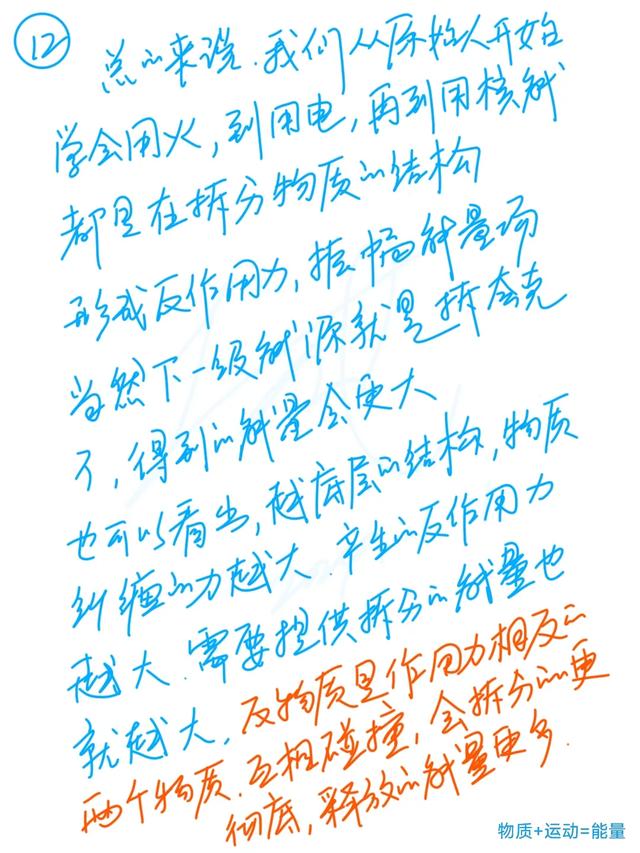 12
总的来说.我们从原始人开始
学会用火,到用电,再到用核能
都是在拆分物质的结构
形成反作用力,振幅能量场
当然下一级能源就是拆夸克
了,得到的能量会更大
也可以看出,越底层的结构,物质
纠缠的力越大.产生的反作用力
越大.需要提供拆分的能量也
就越大.反物质是作用力相反的
两个物质.互相碰撞,会拆分的更
彻底,释放的能量更多.
物质+运动=能量